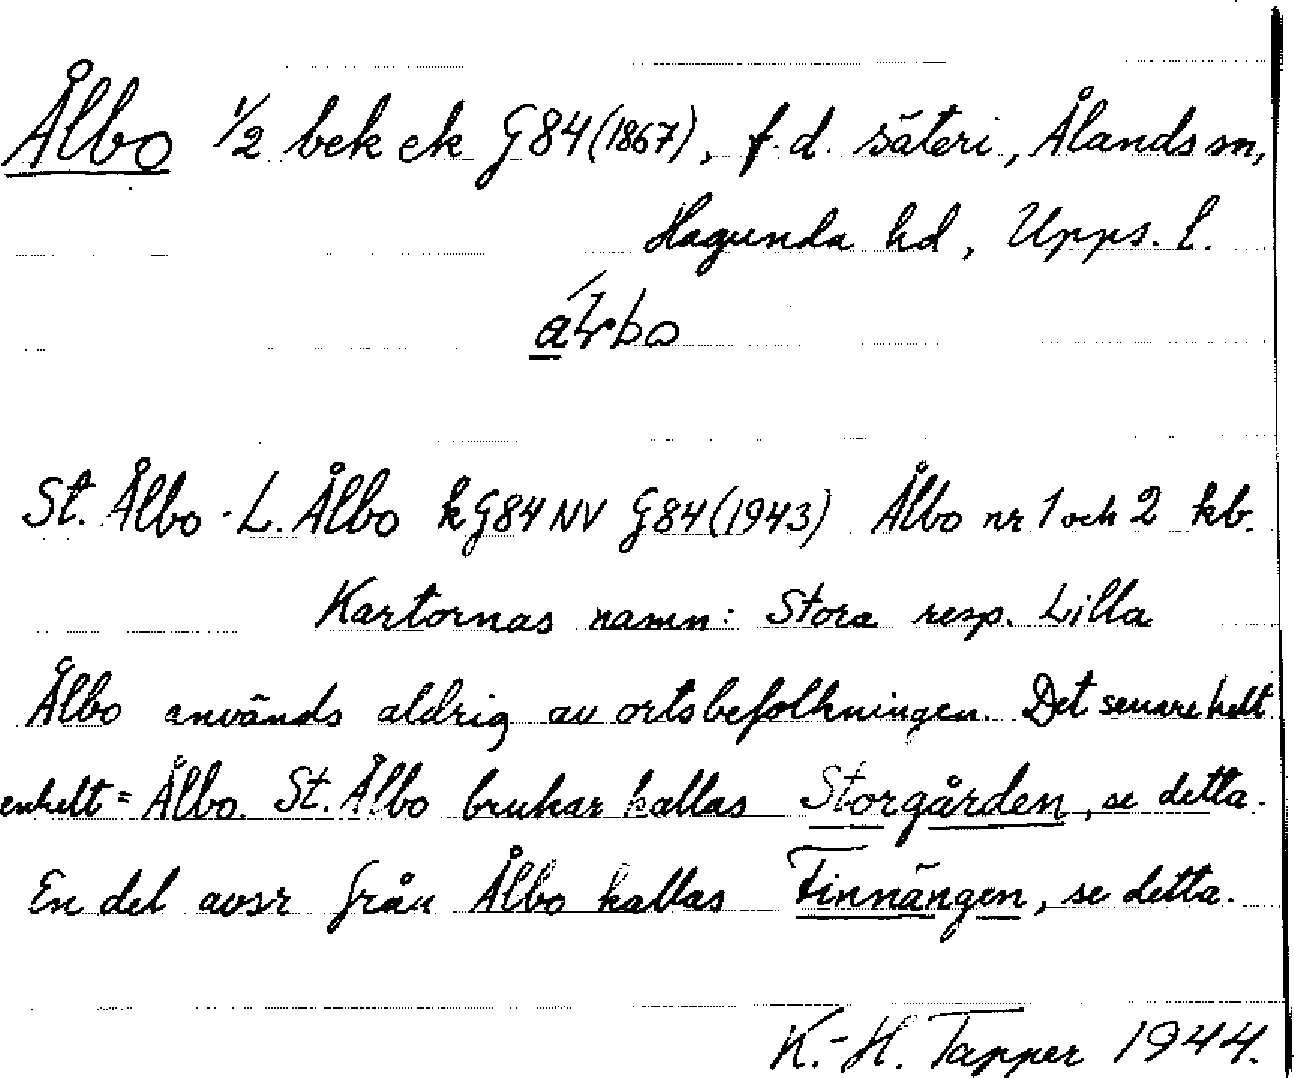 Ålbo 1/2 bek ek G84(1867), f.d. säteri, Ålands sn,
Hagunda hd, Upps. l.
St. Ålbo - L. Ålbo k G84 NV G84 (1943) Ålbo nr 1 och 2 kb.
Kartornas namn: Stora resp. Lilla
Ålbo används aldrig av ortsbefolkningen. Det senare helt
enkelt = Ålbo. St. Ålbo brukar kallas Storgården, se detta.
En del avsr från Ålbo kallas Finnängen, se detta.
K.-H. Tapper 1944.